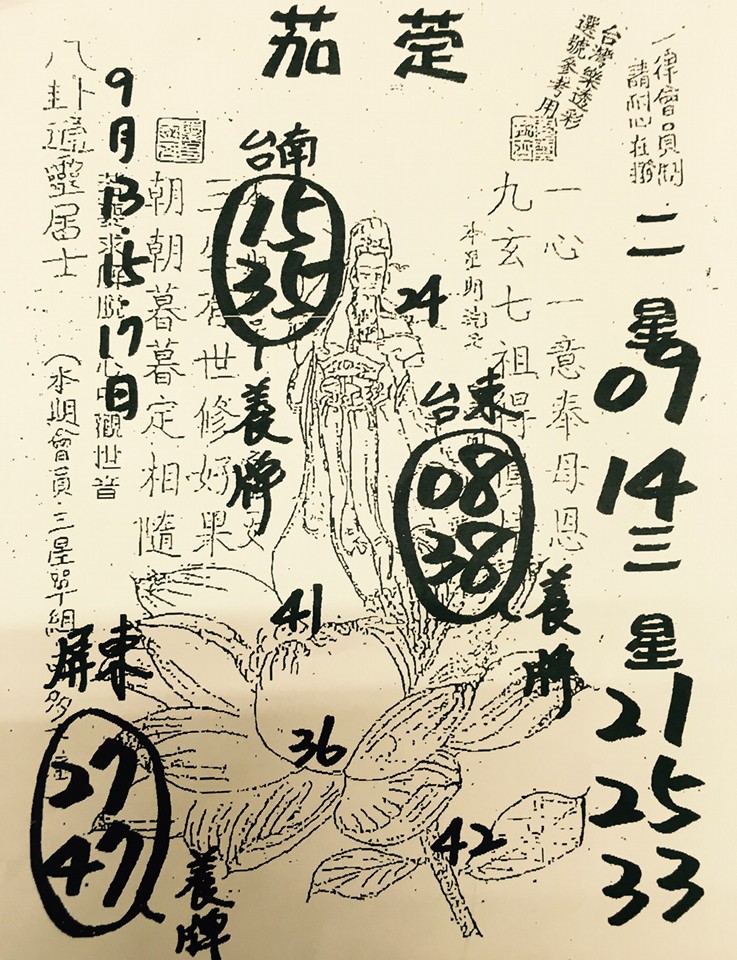 茄萣
一律會員制
請耐心在撥
台灣樂透彩
選號參考用
二星
09
14
三星
21
25
33
一心一意奉母恩
九玄七祖得
24
台東
08
38
養牌
台南
15
35
養牌
世修好果
朝朝暮暮定相隨
觀世音
9月13.15.17日
八卦通靈居士
(本期會員三星單組
41
36
42
屏東
27
47
養牌